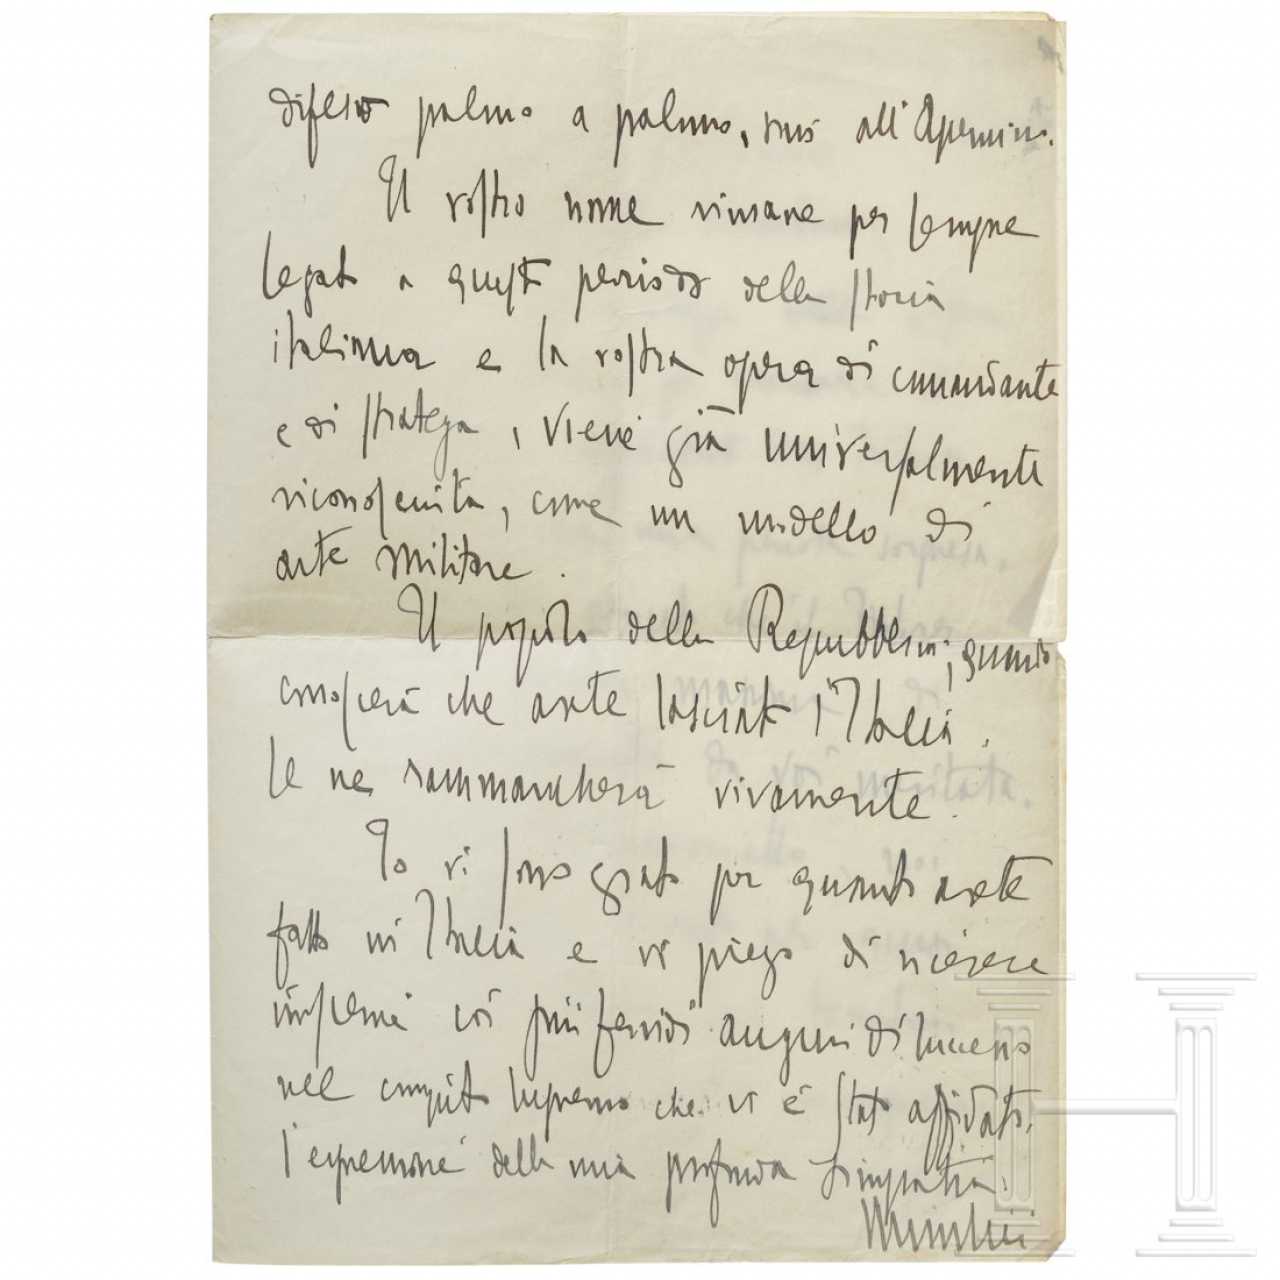 difeso palmo a palmo, sino all'Apennino.
Il vostro nome rimane per sempre
legato a questo periodo della storia
italiana e la vostra opera di comandante
e di stratega, viene già universalmente
riconosciuta, come un modello di
arte militare.
Il popolo della Repubblica, quando
conoscerà che avete lasciato l'Italia,
se ne rammaricherà vivamente.
Io vi sono grato per quanto avete
fatto in Italia e vi prego di ricevere
insieme coi più fervidi auguri di successo
nel compito supremo che vi è stato affidato,
l'espressione della mia profonda simpatia.
Mussolini